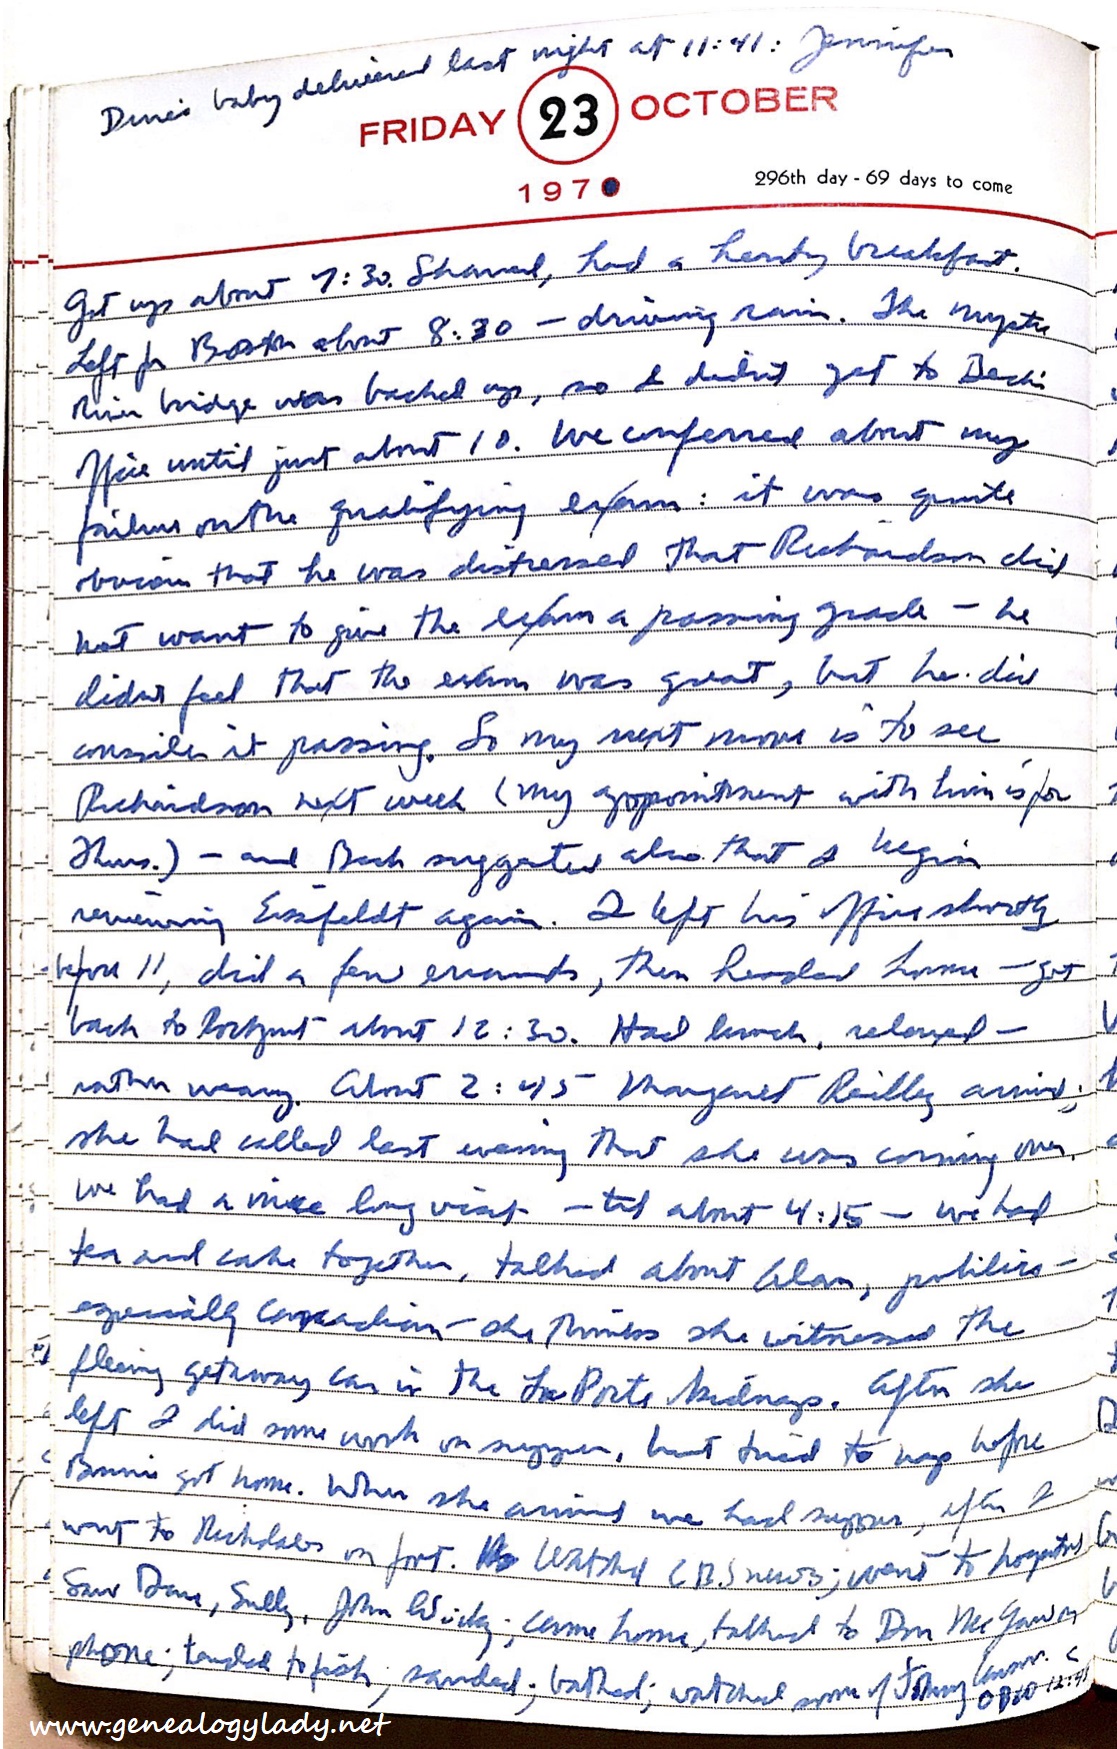 Dave's baby delivered last night at 11:41: Jennifer
FRIDAY 23 OCTOBER
197
296th day - 69 days to come
Got up about 7:30. Shaved, had a hearty breakfast.
Left for Boston about 8:30 — driving rain. The Mystic
River bridge was backed up, so I didn't get to Beck's
office until just about 10. We conferred about my
failure on the qualifying exam: it was quite
obvious that he was distressed that Richardson did
not want to give the exam a passing grade — he
didn't feel that the exam was great, but he did
consider it passing. So my next move is to see
Richardson next week (my appointment with him is for
Thurs.) — and Beck suggested also that I begin
reviewing Eissfeldt again. I left his office shortly
before 11, did a few errands, then headed home — got
back to Rockport about 12:30. Had lunch, relaxed —
rather weary. About 2:45 Margaret Reilley arrived;
she had called last evening that she was coming over.
We had a nice long visit — til about 4:15 — we had
tea and cake together, talked about Alan, politics —
especially Canadian — she thinks she witnessed the
fleeing getaway car in the La Porte kidnap. After she
left I did some work on supper, but tried to nap before
Bonnie got home. When she arrived we had supper, after I
went to Nicholas on foot. Watched CBS news; went to hospital
Saw Dave, Sully, John; came home, talked to Don McGaw on
phone; tended to fish; sanded; bathed; watched some of Johnny Carson.
12:45
www.genealogylady.net